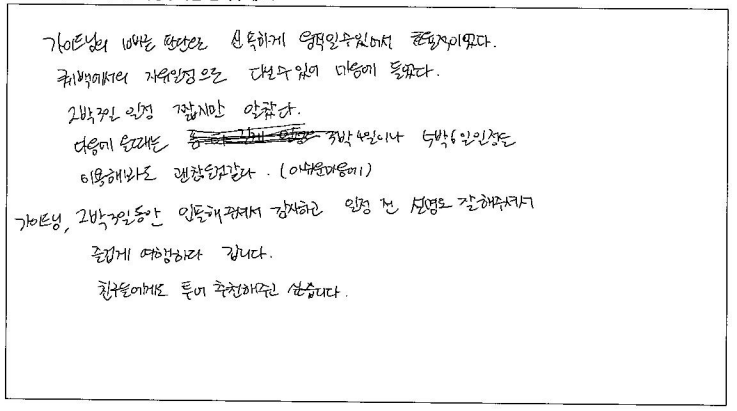 가이드님의 빠른 판단으로 신속하게 움직일수있어서 효율적이었다.
퀘백에서의 자유일정으로 다닐수있어 마음에 들었다.
2박3일 일정 짧지만 알찼다.
다음에 올때는 3박4일이나 5박6일일정을
이용해봐도 괜찮을것같다. (아쉬운마음에)
가이드님, 2박3일동안 인솔해주셔서 감사하고 일정 전 설명도 잘해주셔서
즐겁게 여행하다 갑니다.
친구들에게도 투어 추천해주고 싶습니다.